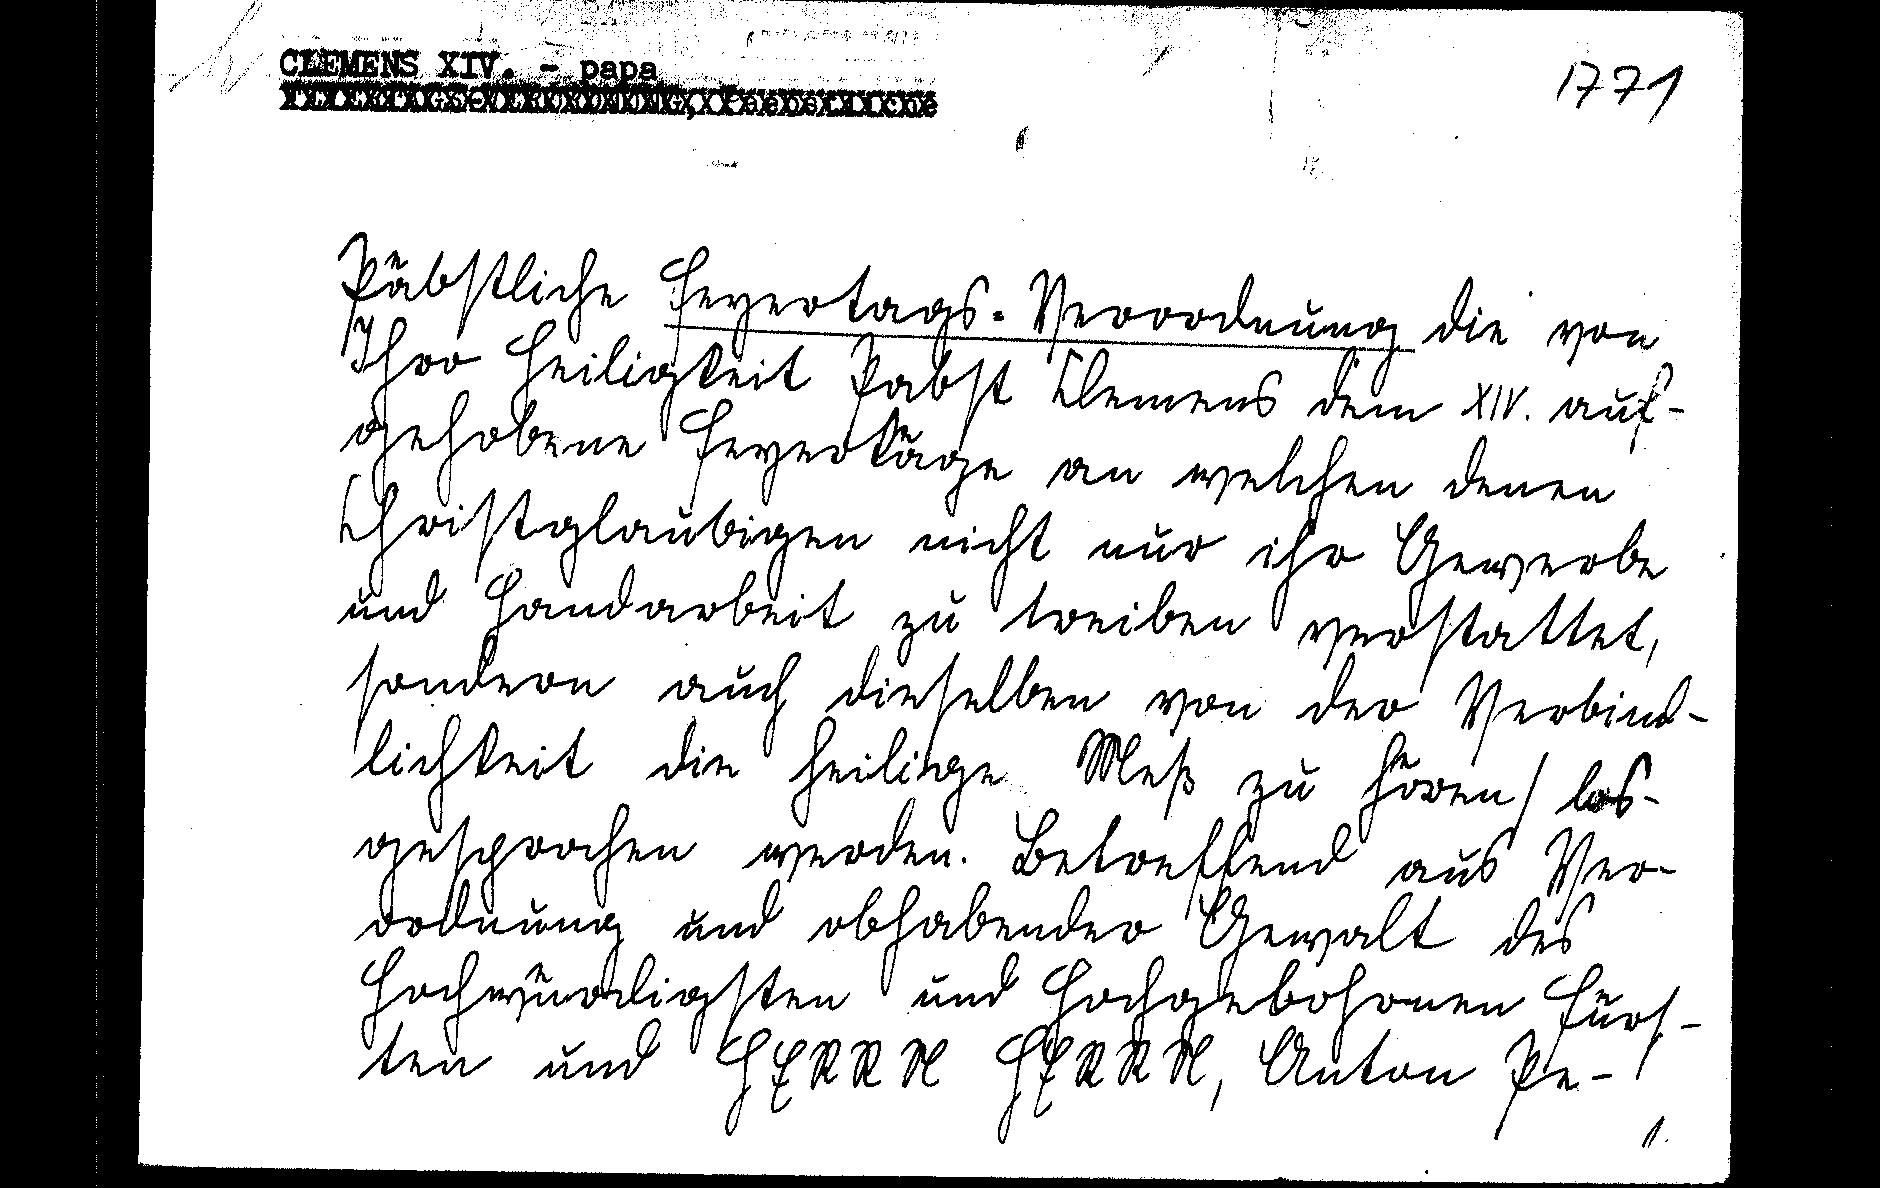 CLEMENS XIV. - papa
1771
Päbstliche Feyertags-Verordnung die von
Ihro Heiligkeit Pabst Clemens dem XIV. auf-
gehobene Feyertäge an welchen denen
Christglaubigen nicht nur ihr Gewerbe
und Handarbeit zu treiben verstattet,
sondern auch dieselben von der Verbind-
lichkeit die heilige Meß zu hören / los-
gesprochen werden. Betreffend aus Ver-
ordnung und obhabender Gewalt des
Hochwürdigsten und Hochgebohrnen Fürs-
ten und HERRN HERRN, Anton Pe-
1.